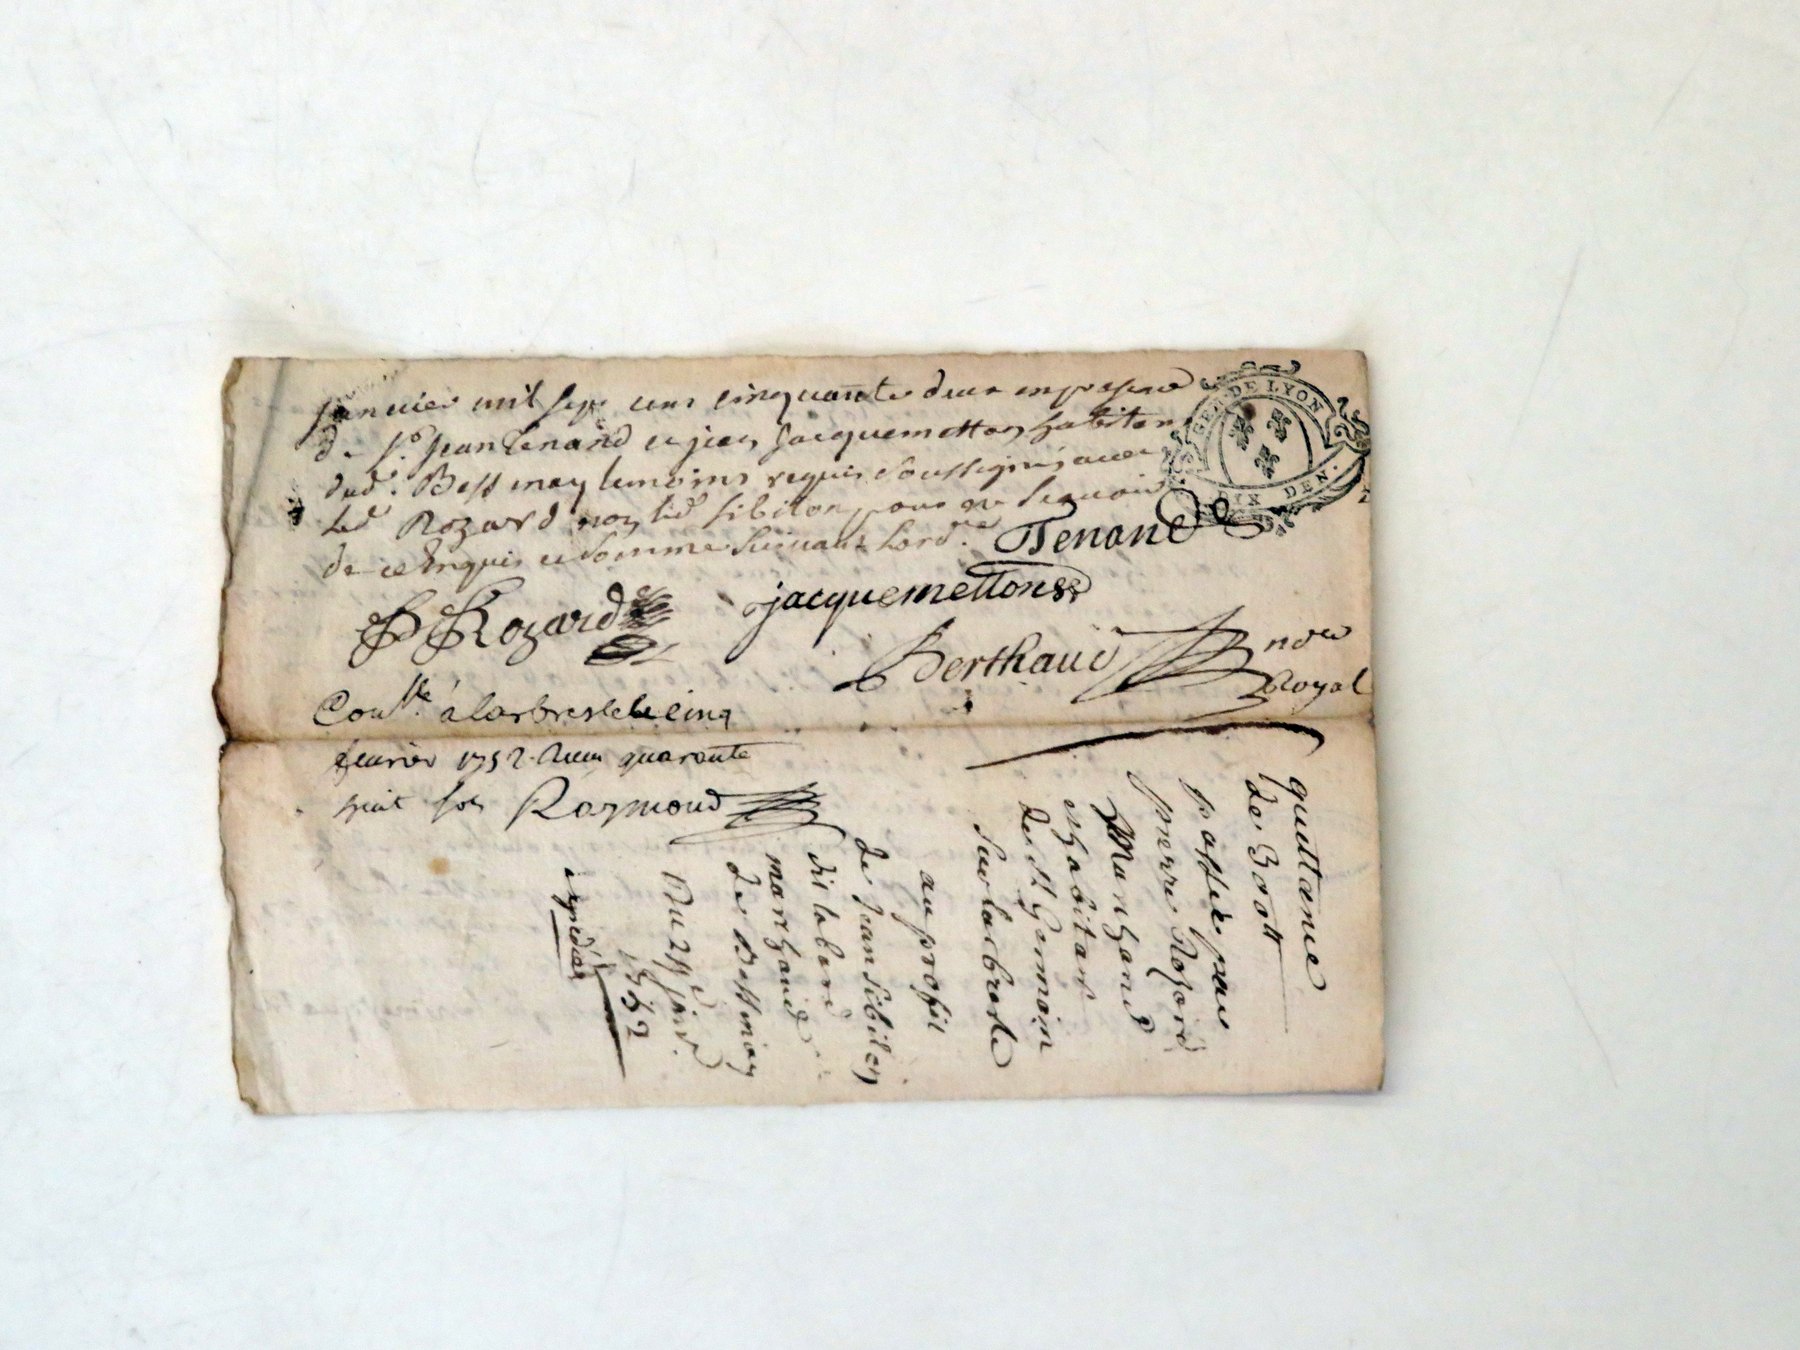 janvier mil sept cens cinquante deux en presence
de sr. jean tenand et jean jacquemetton habitans
dud. Bessenay temoins requis soussignés avec
led Rozard non led sibilon pour ne scavoir
de ce enquis et somme suivant lord.ce
Tenand
P Rozard
jacquemettons
Berthaud nore
Royal
GEN DE LYON
DIX DEN.
Conlle. a larbresle le cinq
fevrier 1752. Recu quarante
huit sols Raymond
quittance
de 300 tt
passée par
pierre Rozard
Marchand
habitant
de st Germain
sur larbresle
au profit
de jean sibilon
dit labord
marchand
de Bessenay
Du 24e janv.
1752
expediée